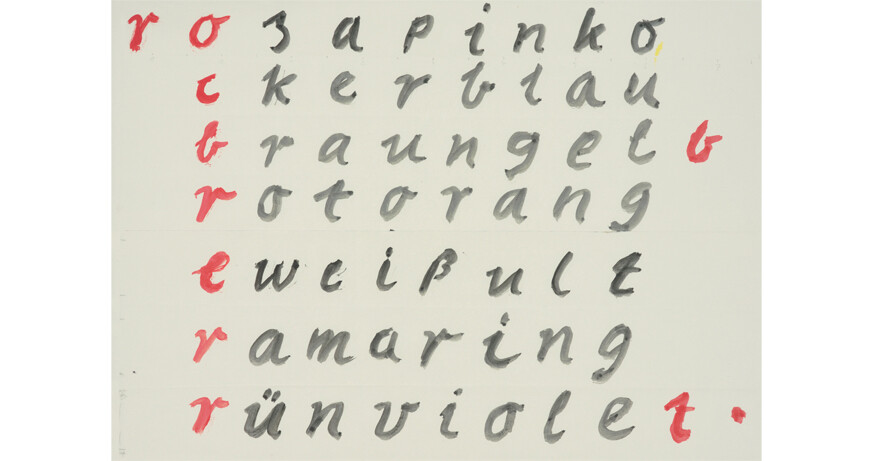 rosapinko
ckerblau
braungelb
rotorang
eweißult
ramaring
rünviolet.